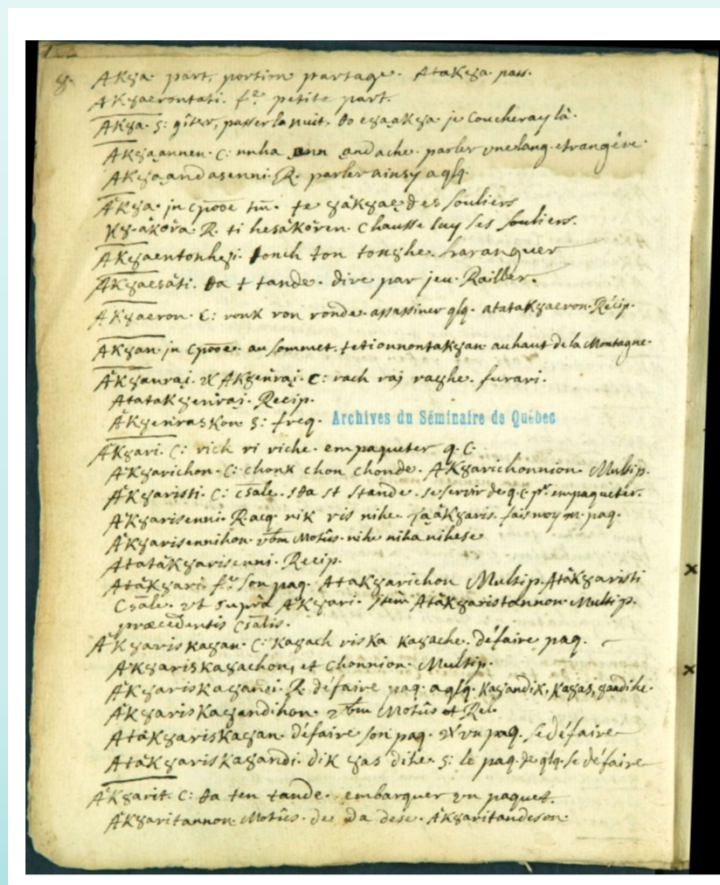 8. AK8a. part, portion partage. AtaK8a. pass.
AK8aerontati. f.re petite part.
AK8a. S: gîter, passer la nuit. do e8aaK8a je coucheray là.
AK8aannen. C: nnha ann andache. parler une lang. etrangére.
AK8aandasenni. R. parler ainsy a qlq.
AK8a. jn cpõoe tm̃. te 8aK8ae des souliers
R. ti hesaKoren. chausse luy ses souliers.
AK8aentonh8i. tonch ton tonghe. haranguer
AK8aesati. da t tande. dire par jeu. Railler.
AK8aeron. C: ronx ron ronde. assassiner qlq. atataK8aeron. Récip.
AK8an. jn cpõoe. au sommet. tetionnontaK8an. au haut de la Montagne.
AK8anrai. AK8enrai. C: rach rai raghe. furari.
AtataK8enrai. Recip.
AK8enrasKon S: freq.
Archives du Séminaire de Québec
AK8ari. C: rich ri riche. empaqueter q. C.
AK8arichon. C: chonx chon chonde. AK8arichonnion. Multip.
AK8aristi. C: csãle. sta st stande. se servir de q. c. pr. empaqueter.
AK8arisenni. R. acq. nix ris nihe. taaK8aris. fais moy m. paq.
AK8arisennihon. vbm Motûs. nihe niha nihese
AtataK8arisenni. Recip.
AtaK8ari. f.re son paq. AtaK8arichon Multip. AtaK8aristi
Csãle. ut supra AK8ari. jtem AtaK8aristannon. Multip.
præcedentis csalis.
AK8arisKa8an. C: Ka8ach risKa Ka8ache. défaire paq.
AK8arisKa8achon, et chonnion. Multip.
AK8arisKa8andi. R. défaire paq. a qlq. Ka8andix, Ka8as, 8andihe.
AK8arisKa8andihon. vbm Motûs et Rel.
AtaK8arisKa8an. défaire son paq. un paq. se défaire
AtaK8arisKa8andi. dix 8as dihe. S: le paq. de qlq. se défaire
AK8arit. C: da ten tande. embarquer un paquet.
AK8aritannon. Motûs. de da dese. AK8aritandeson.